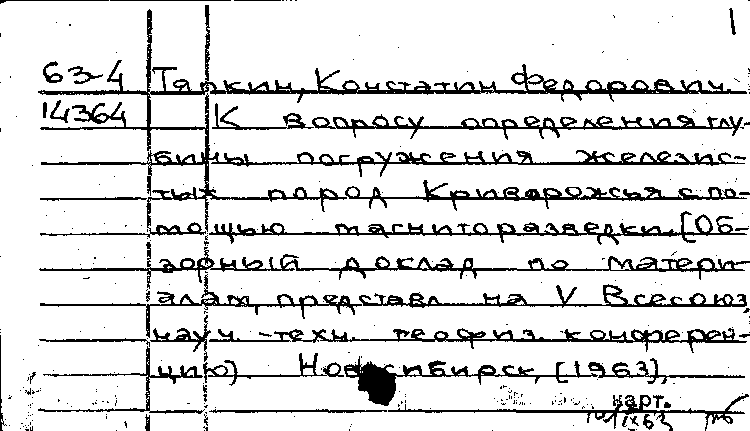 1
63-4 Тяпкин, Констатин Федорович.
14364 К вопросу определения глу-
бины погружения железис-
тых пород Криворожья с по-
мощью магниторазведки. [Об-
зорный доклад по матери-
алам, представл на V Всесоюз.
науч. -техн. геофиз. конферен-
цию) Новосибирск, [1963],
карт.